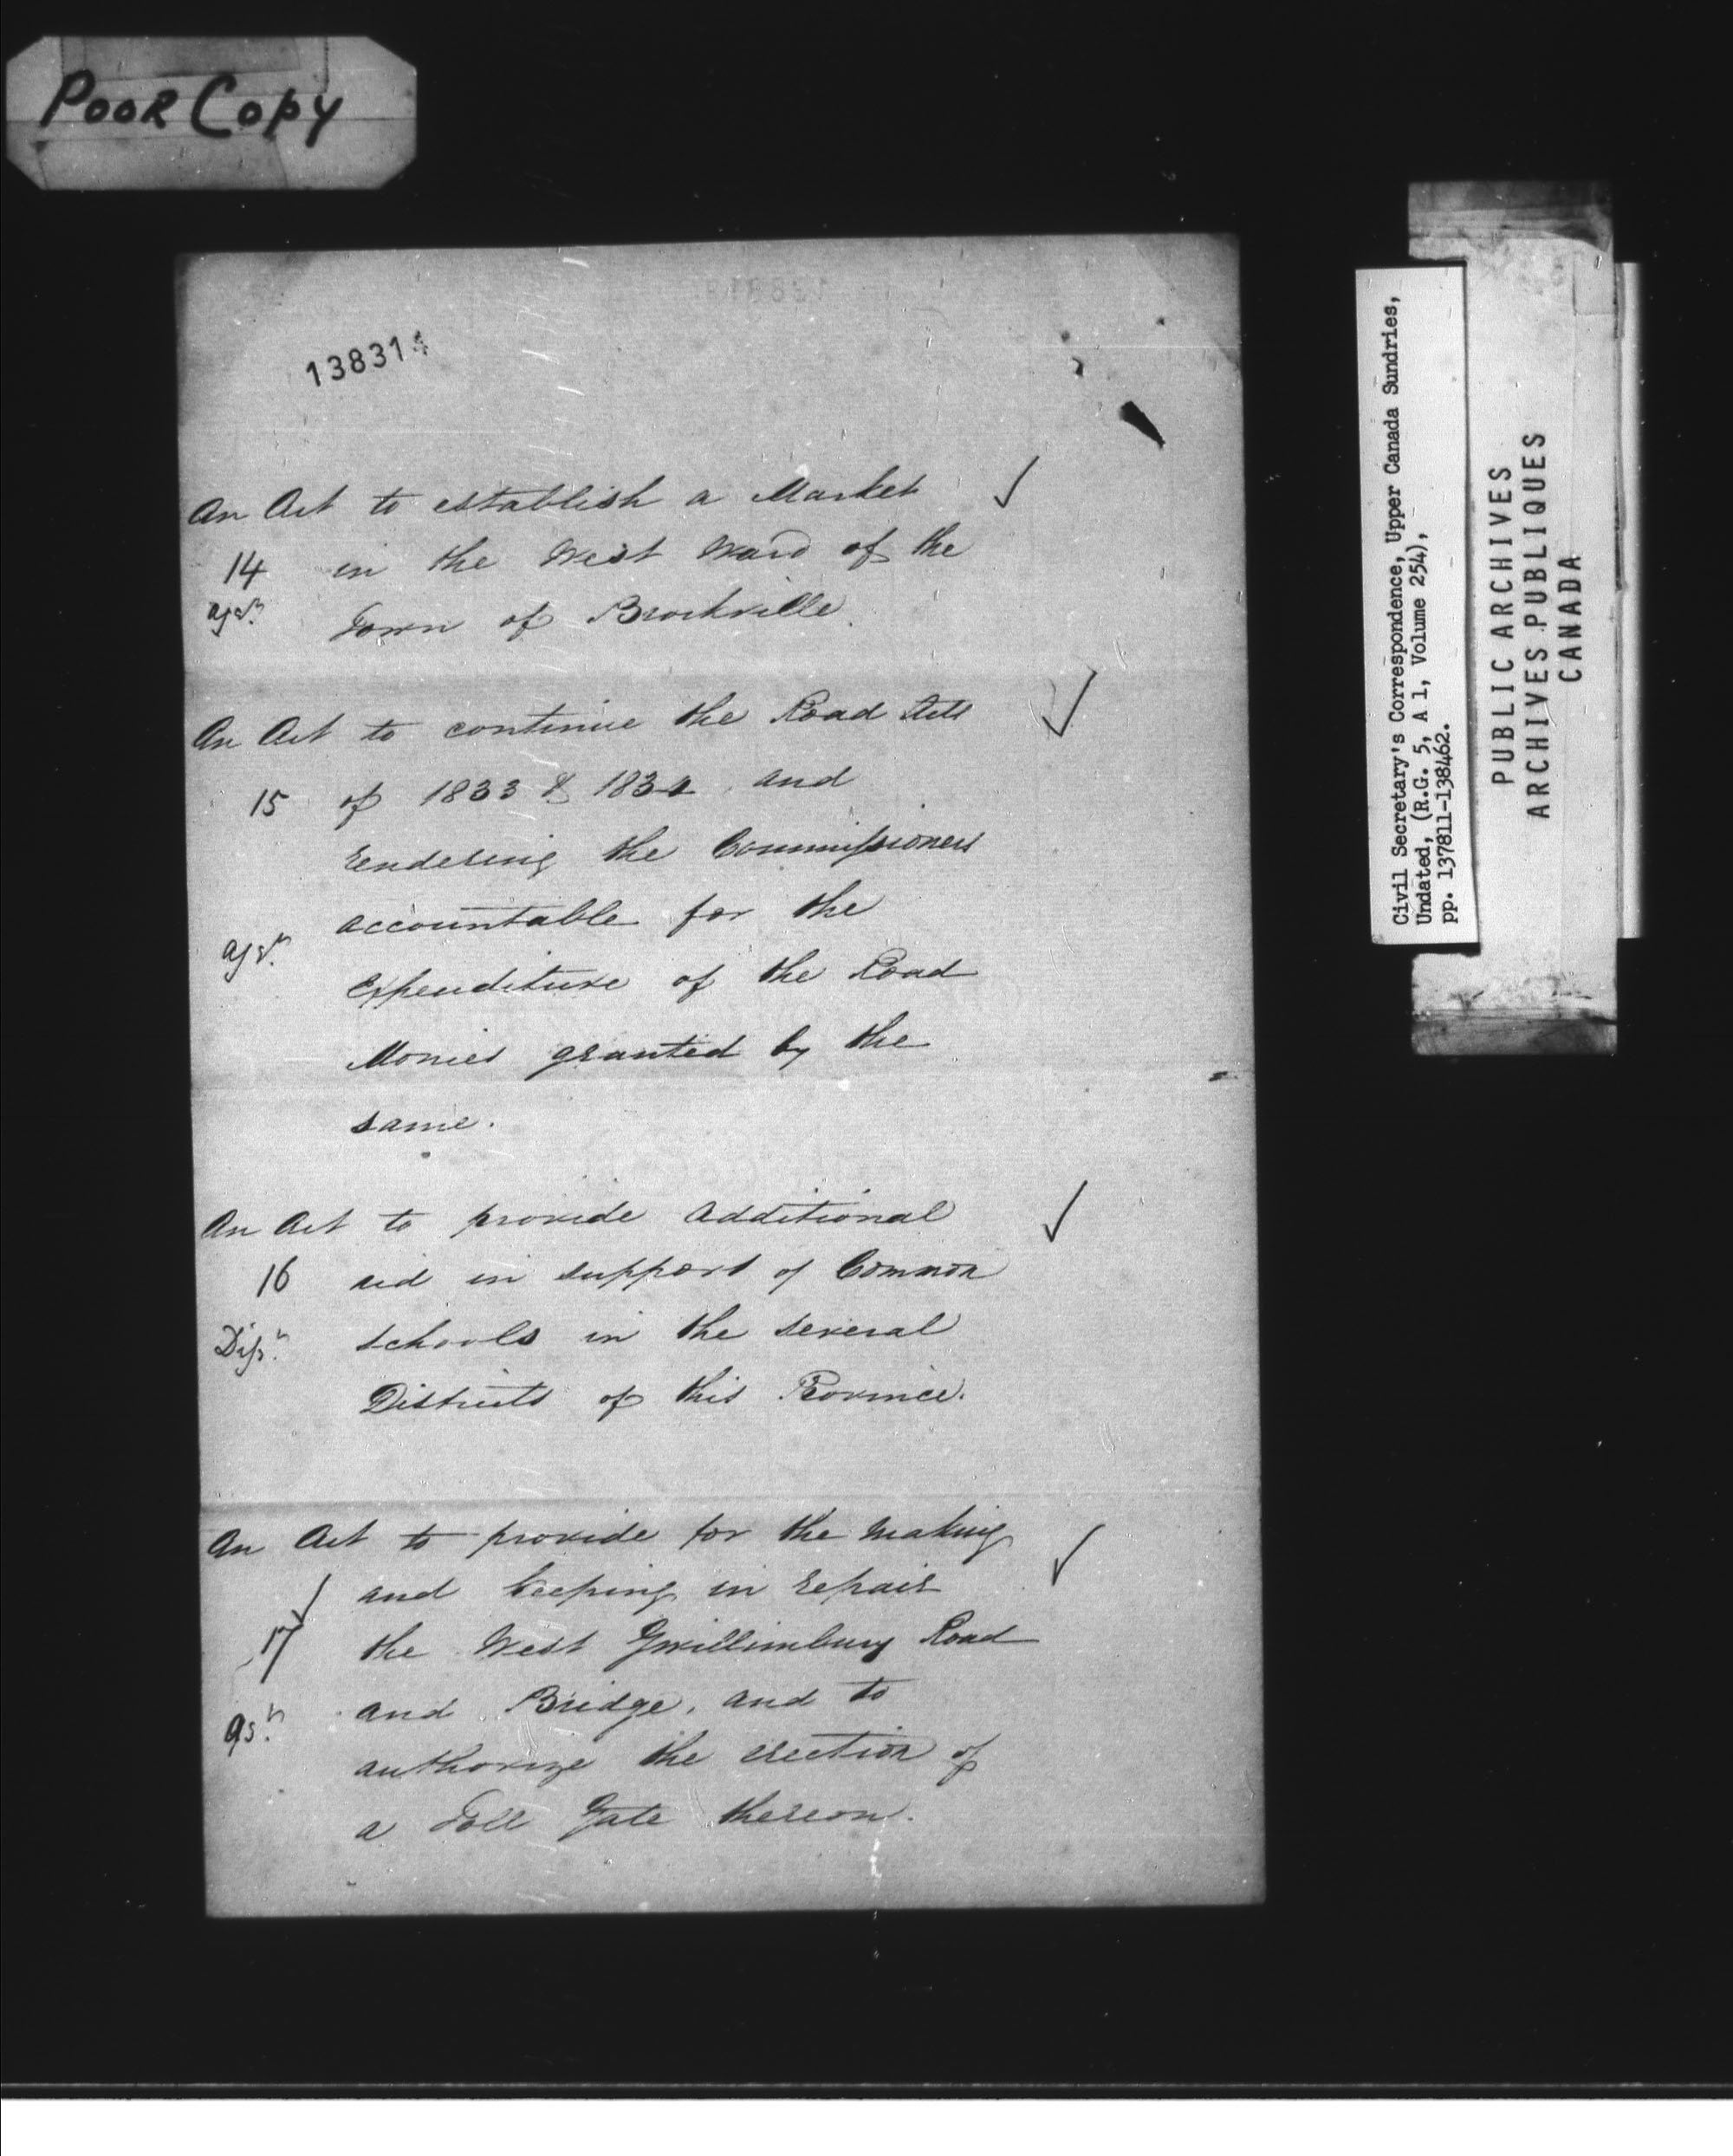 POOR COPY
138314
An Act to establish a Market ✓
14 in the West Ward of the
Town of Brockville.
An Act to continue the Road Acts ✓
15 of 1833 & 183 and
rendering the Commissioners
accountable for the
expenditure of the Road
Monies granted by the
same.
An Act to provide additional ✓
16 aid in support of Common
Disn. Schools in the several
Districts of this Province.
An Act to provide for the making ✓
✓ and keeping in repair
17 the West Gwillimbury Road
and Bridge, and to
authorize the erection of
a Toll Gate thereon.
Civil Secretary's Correspondence, Upper Canada Sundries,
Undated, (R.G. 5, A 1, Volume 254),
pp. 137811-138462.
PUBLIC ARCHIVES
ARCHIVES PUBLIQUES
CANADA